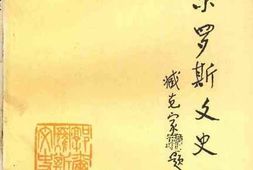 尔罗斯文史
臧克家题